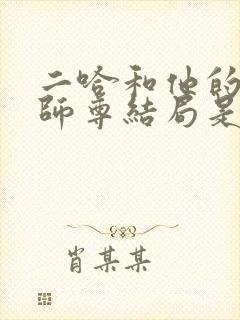 二哈和他的
師尊結局是
肖某某